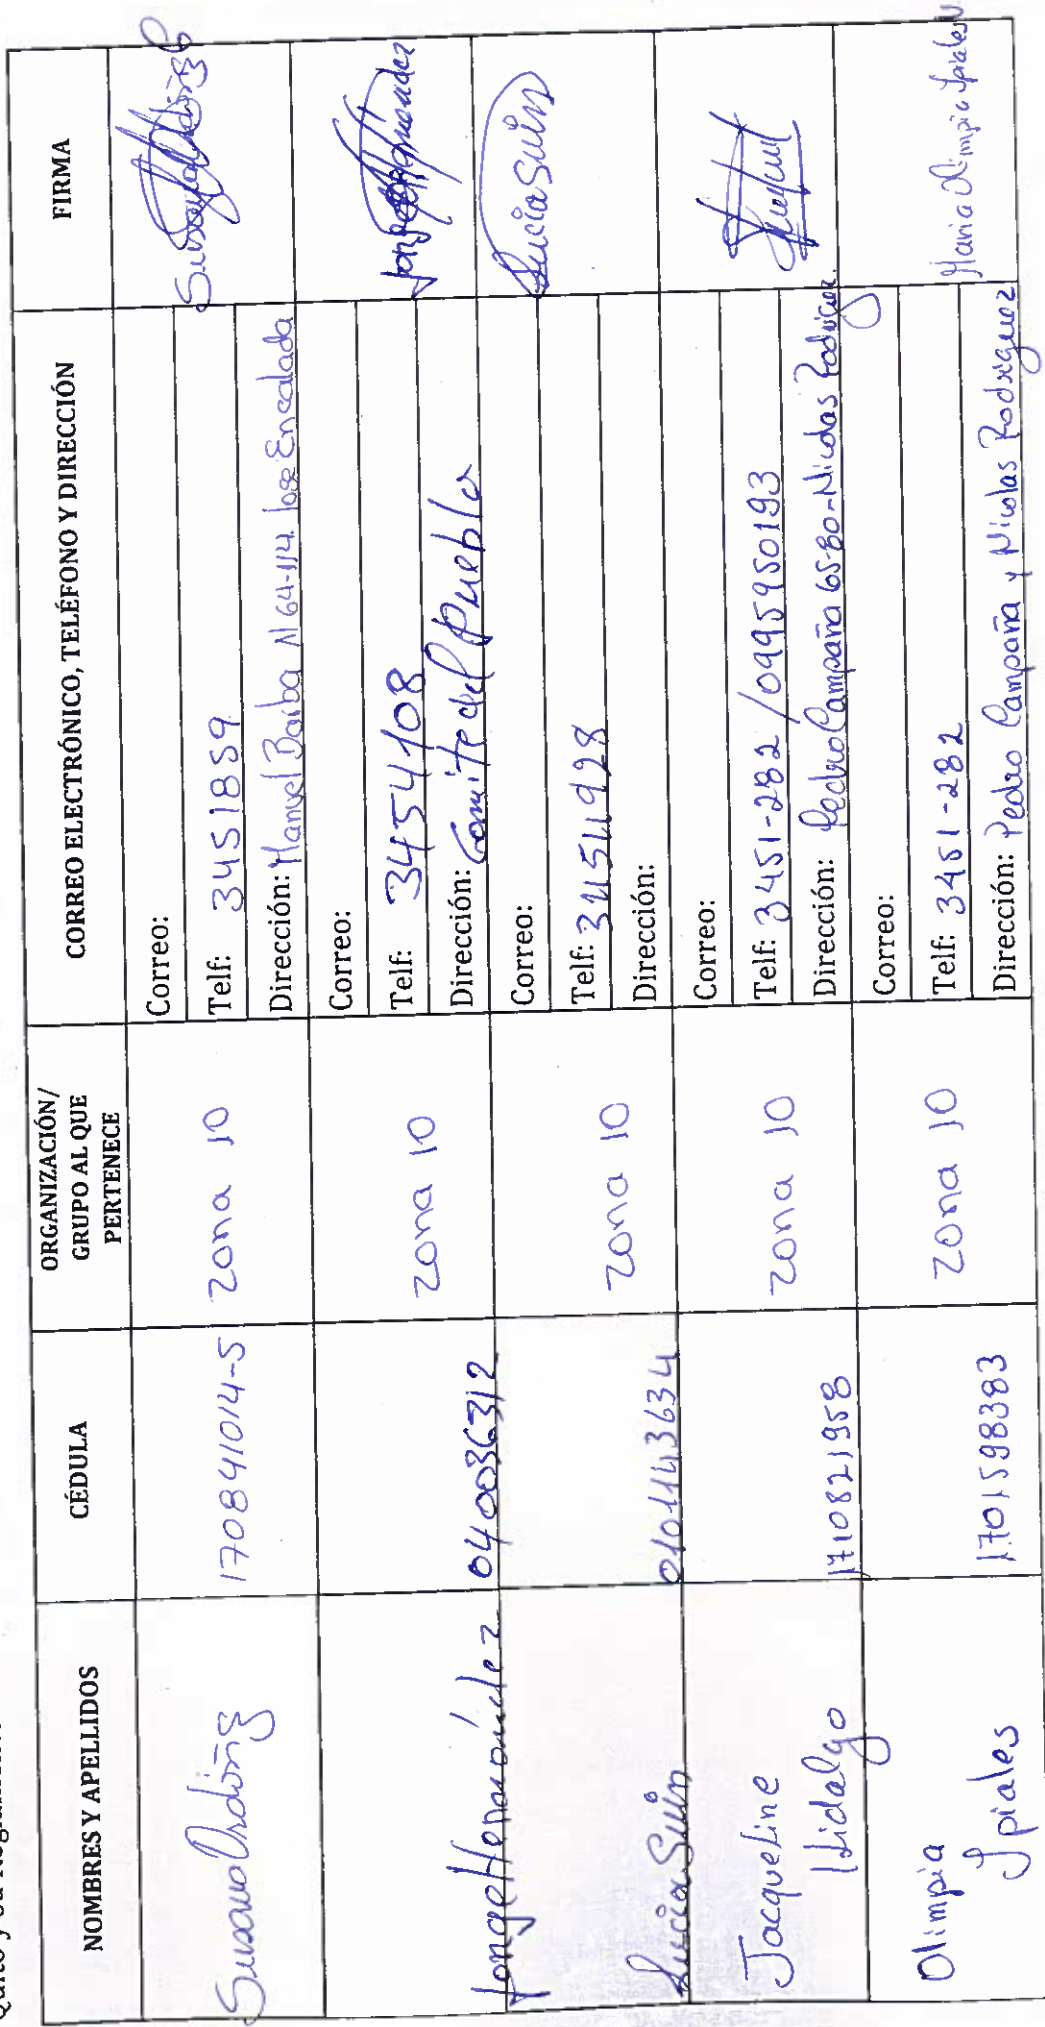 Quito y su Reglamento
NOMBRES Y APELLIDOS
CÉDULA
ORGANIZACIÓN/
GRUPO AL QUE
PERTENECE
CORREO ELECTRÓNICO, TELÉFONO Y DIRECCIÓN
FIRMA
Susana Ordóñez
170841014-5
zona 10
Correo:
Telf: 3451859
Dirección: Manuel Barba N64-114 Jose Encalada
Susana Ordóñez
Jorge Hernández
040036312
zona 10
Correo:
Telf: 3454108
Dirección: Comite del Pueblo
Jorge Hernandez
Lucia Suin
0101143634
zona 10
Correo:
Telf: 3454928
Dirección:
Lucia Suin
Jacqueline
Hidalgo
1710821958
zona 10
Correo:
Telf: 3451-282 / 0995950193
Dirección: Pedro Campaña 65-80-Nicolas Rodriguez
Olimpia
Ipiales
1701598383
zona 10
Correo:
Telf: 3451-282
Dirección: Pedro Campaña y Nicolas Rodriguez
Maria Olimpia Ipiales